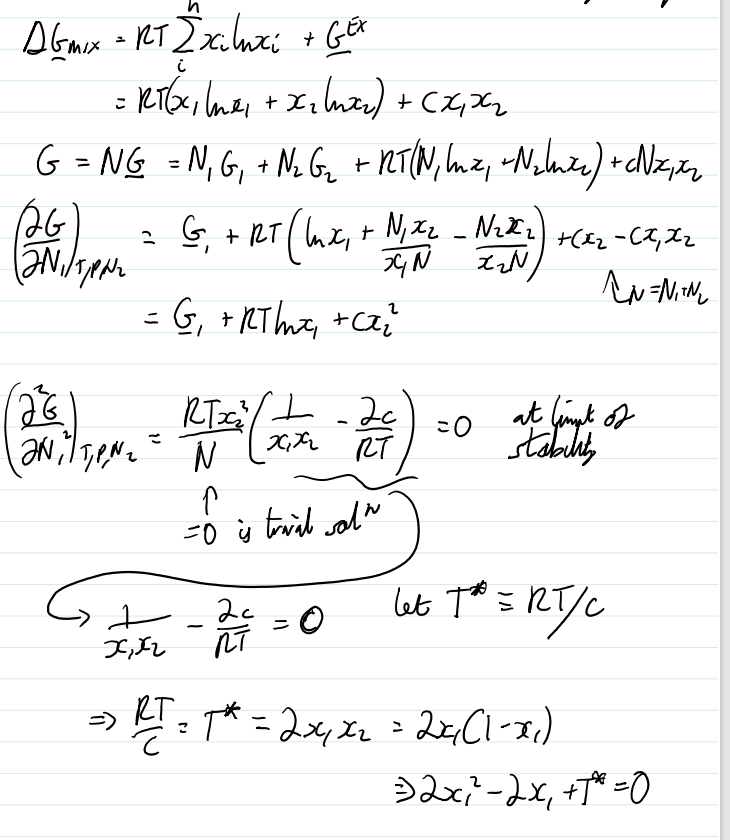 ΔG̲ₘᵢₓ = RT Σᵢⁿ xᵢ ln xᵢ + G̲ᴱˣ
= RT(x₁ ln x₁ + x₂ ln x₂) + Cx₁x₂
G = NG̲ = N₁G₁ + N₂G₂ + RT(N₁ ln x₁ + N₂ ln x₂) + cNx₁x₂
(∂G/∂N₁)T,P,N₂ = G̲₁ + RT(ln x₁ + N₁x₂/x₁N - N₂x₂/x₂N) + Cx₂ - Cx₁x₂
↑ N = N₁+N₂
= G̲₁ + RT ln x₁ + Cx₂²
(∂²G/∂N₁²)T,P,N₂ = RTx₂²/N (1/x₁x₂ - 2c/RT) = 0 at limit of
stability
↑
=0 is trivial solⁿ
→ 1/x₁x₂ - 2c/RT = 0 let T* ≡ RT/c
⇒ RT/C = T* = 2x₁x₂ = 2x₁(1-x₁)
⇒ 2x₁² - 2x₁ + T* = 0